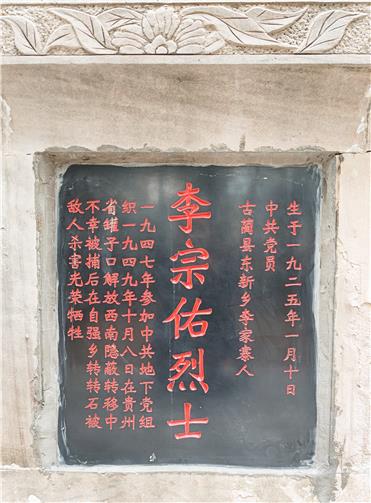 生于一九二五年一月十日
中共党员
古蔺县东新乡李家寨人
李宗佑烈士
一九四七年参加中共地下党组
织一九四九年十月八日在贵州
省罐子口解放西南隐蔽转移中
不幸被捕后在自强乡转转石被
敌人杀害光荣牺牲